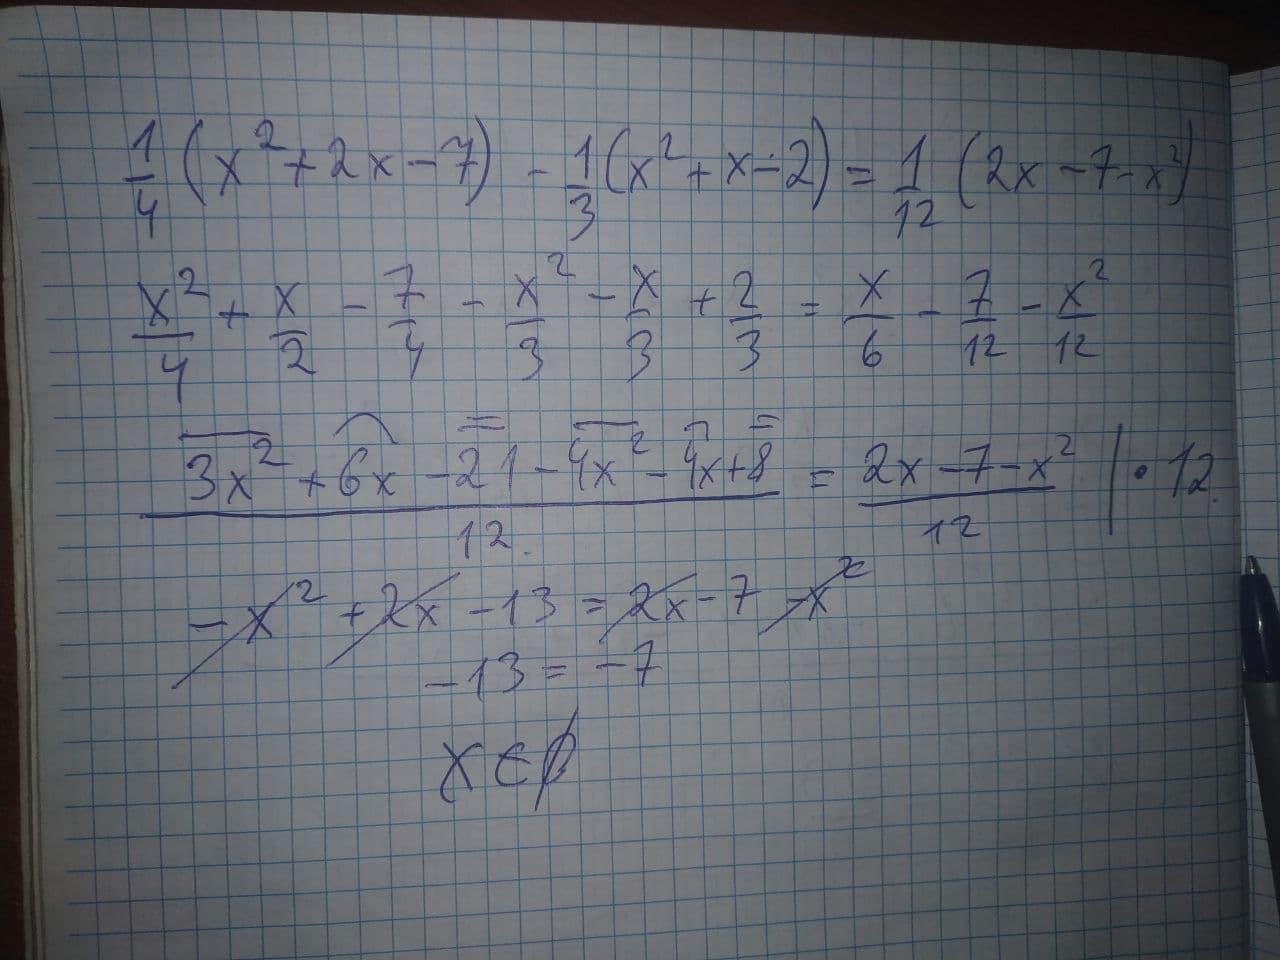 1/4 (x² + 2x - 7) - 1/3 (x² + x - 2) = 1/12 (2x - 7 - x²)
x²/4 + x/2 - 7/4 - x²/3 - x/3 + 2/3 = x/6 - 7/12 - x²/12
(3x² + 6x - 21 - 4x² - 4x + 8)/12 = (2x - 7 - x²)/12 | · 12
-x² + 2x - 13 = 2x - 7 - x²
-13 = -7
x ∈ ∅